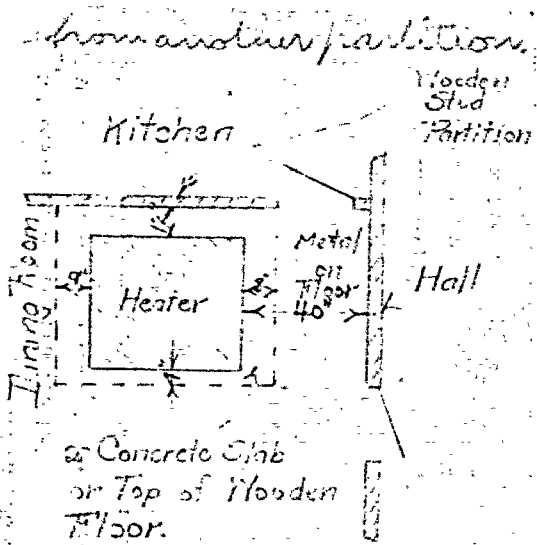 from another partition.
Wooden
Stud
Partition
Kitchen
Dining Room
Heater
Metal
on
Floor
40"
Hall
a Concrete Slab
or Top of Wooden
Floor.